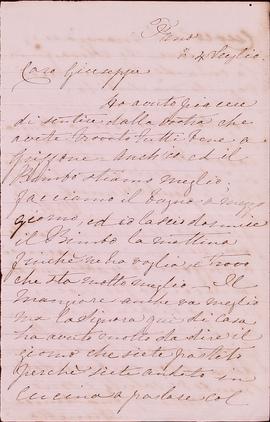 li 4 Luglio.
Caro Giuseppe
Ho avuto piacere
di sentire dalla vostra che
avete trovato tutti bene a
Anch'io ed il
Bimbo stiamo meglio;
facciamo il bagno a mezzo
giorno, ed io lascio dormire
il Bimbo la mattina
finchè ne ha voglia, e trovo
che sta molto meglio — Il
mangiare anche va meglio
ma la Signora qui di casa
ha avuto molto da dire il
giorno che siete partito
perchè siete andato in
cucina a parlare col